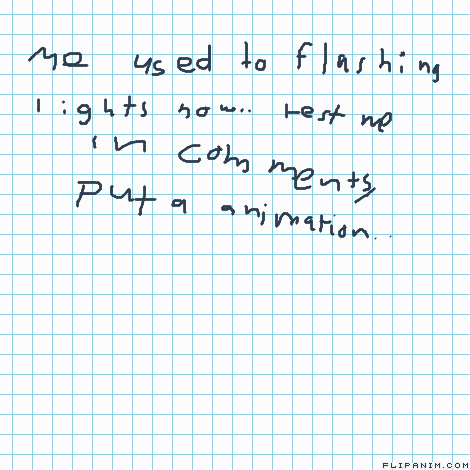 me used to flashing
lights now.. test me
in comments,
Put a animation...
FLIPANIM.COM